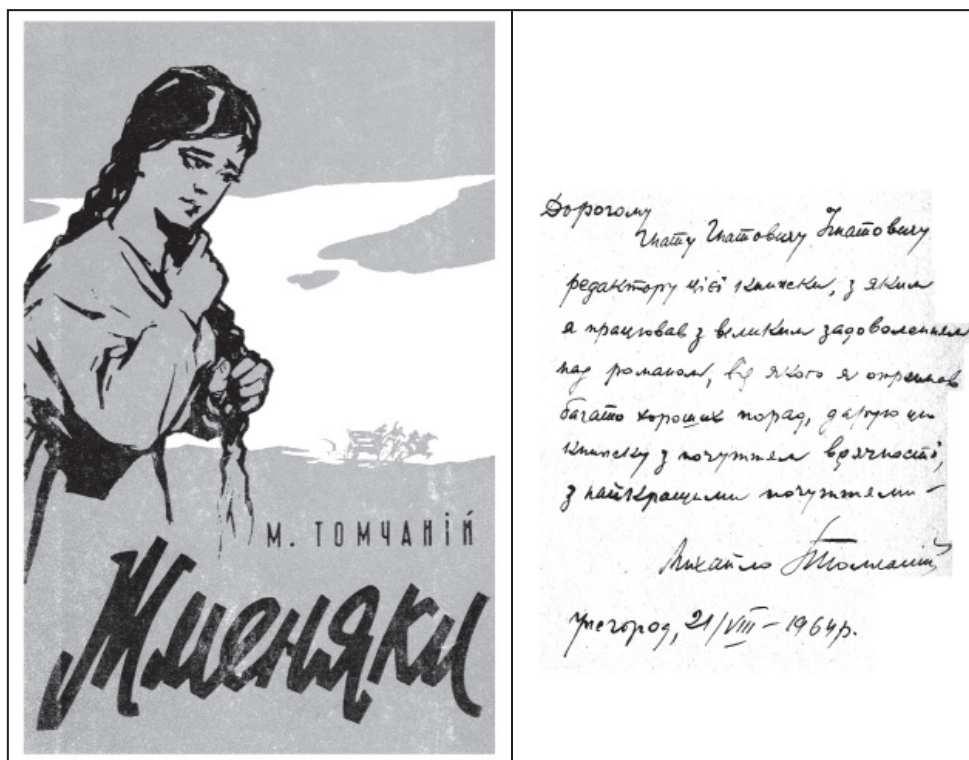 М. ТОМЧАНІЙ
Жменяки
Дорогому
Гнату Гнатовичу Гнатовичу
редактору цієї книжки, з яким
я працював з великим задоволенням
над романом, від якого я отримав
багато хороших порад, дарую цю
книжку з почуттям вдячності,
з найкращими почуттями –
Михайло Томчаній
Ужгород, 21/VIII – 1964 р.